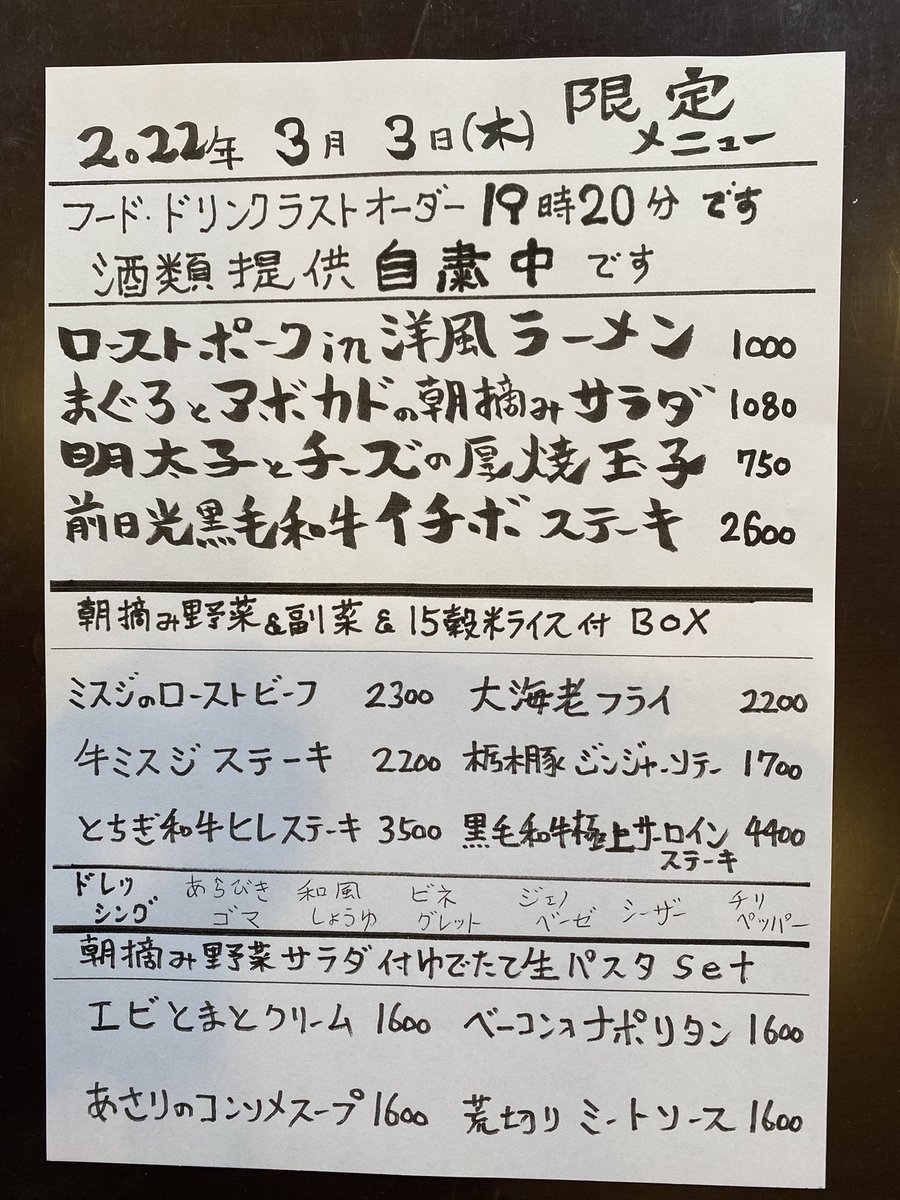 2022年 3月 3日(木) 限定メニュー
フード・ドリンクラストオーダー 19時20分 です
酒類提供 自粛中 です
ローストポークin洋風ラーメン 1000
まぐろとアボカドの朝摘みサラダ 1080
明太子とチーズの厚焼玉子 750
前日光黒毛和牛イチボステーキ 2600
朝摘み野菜&副菜&15穀米ライス付 BOX
ミスジのローストビーフ 2300 大海老フライ 2200
牛ミスジステーキ 2200 栃木豚ジンジャーソテー 1700
とちぎ和牛ヒレステーキ 3500 黒毛和牛極上サーロインステーキ 4400
ドレッシング あらびきゴマ 和風しょうゆ ビネグレット ジェノベーゼ シーザー チリペッパー
朝摘み野菜サラダ付ゆでたて生パスタ Set
エビとまとクリーム 1600 ベーコンonナポリタン 1600
あさりのコンソメスープ 1600 荒切りミートソース 1600